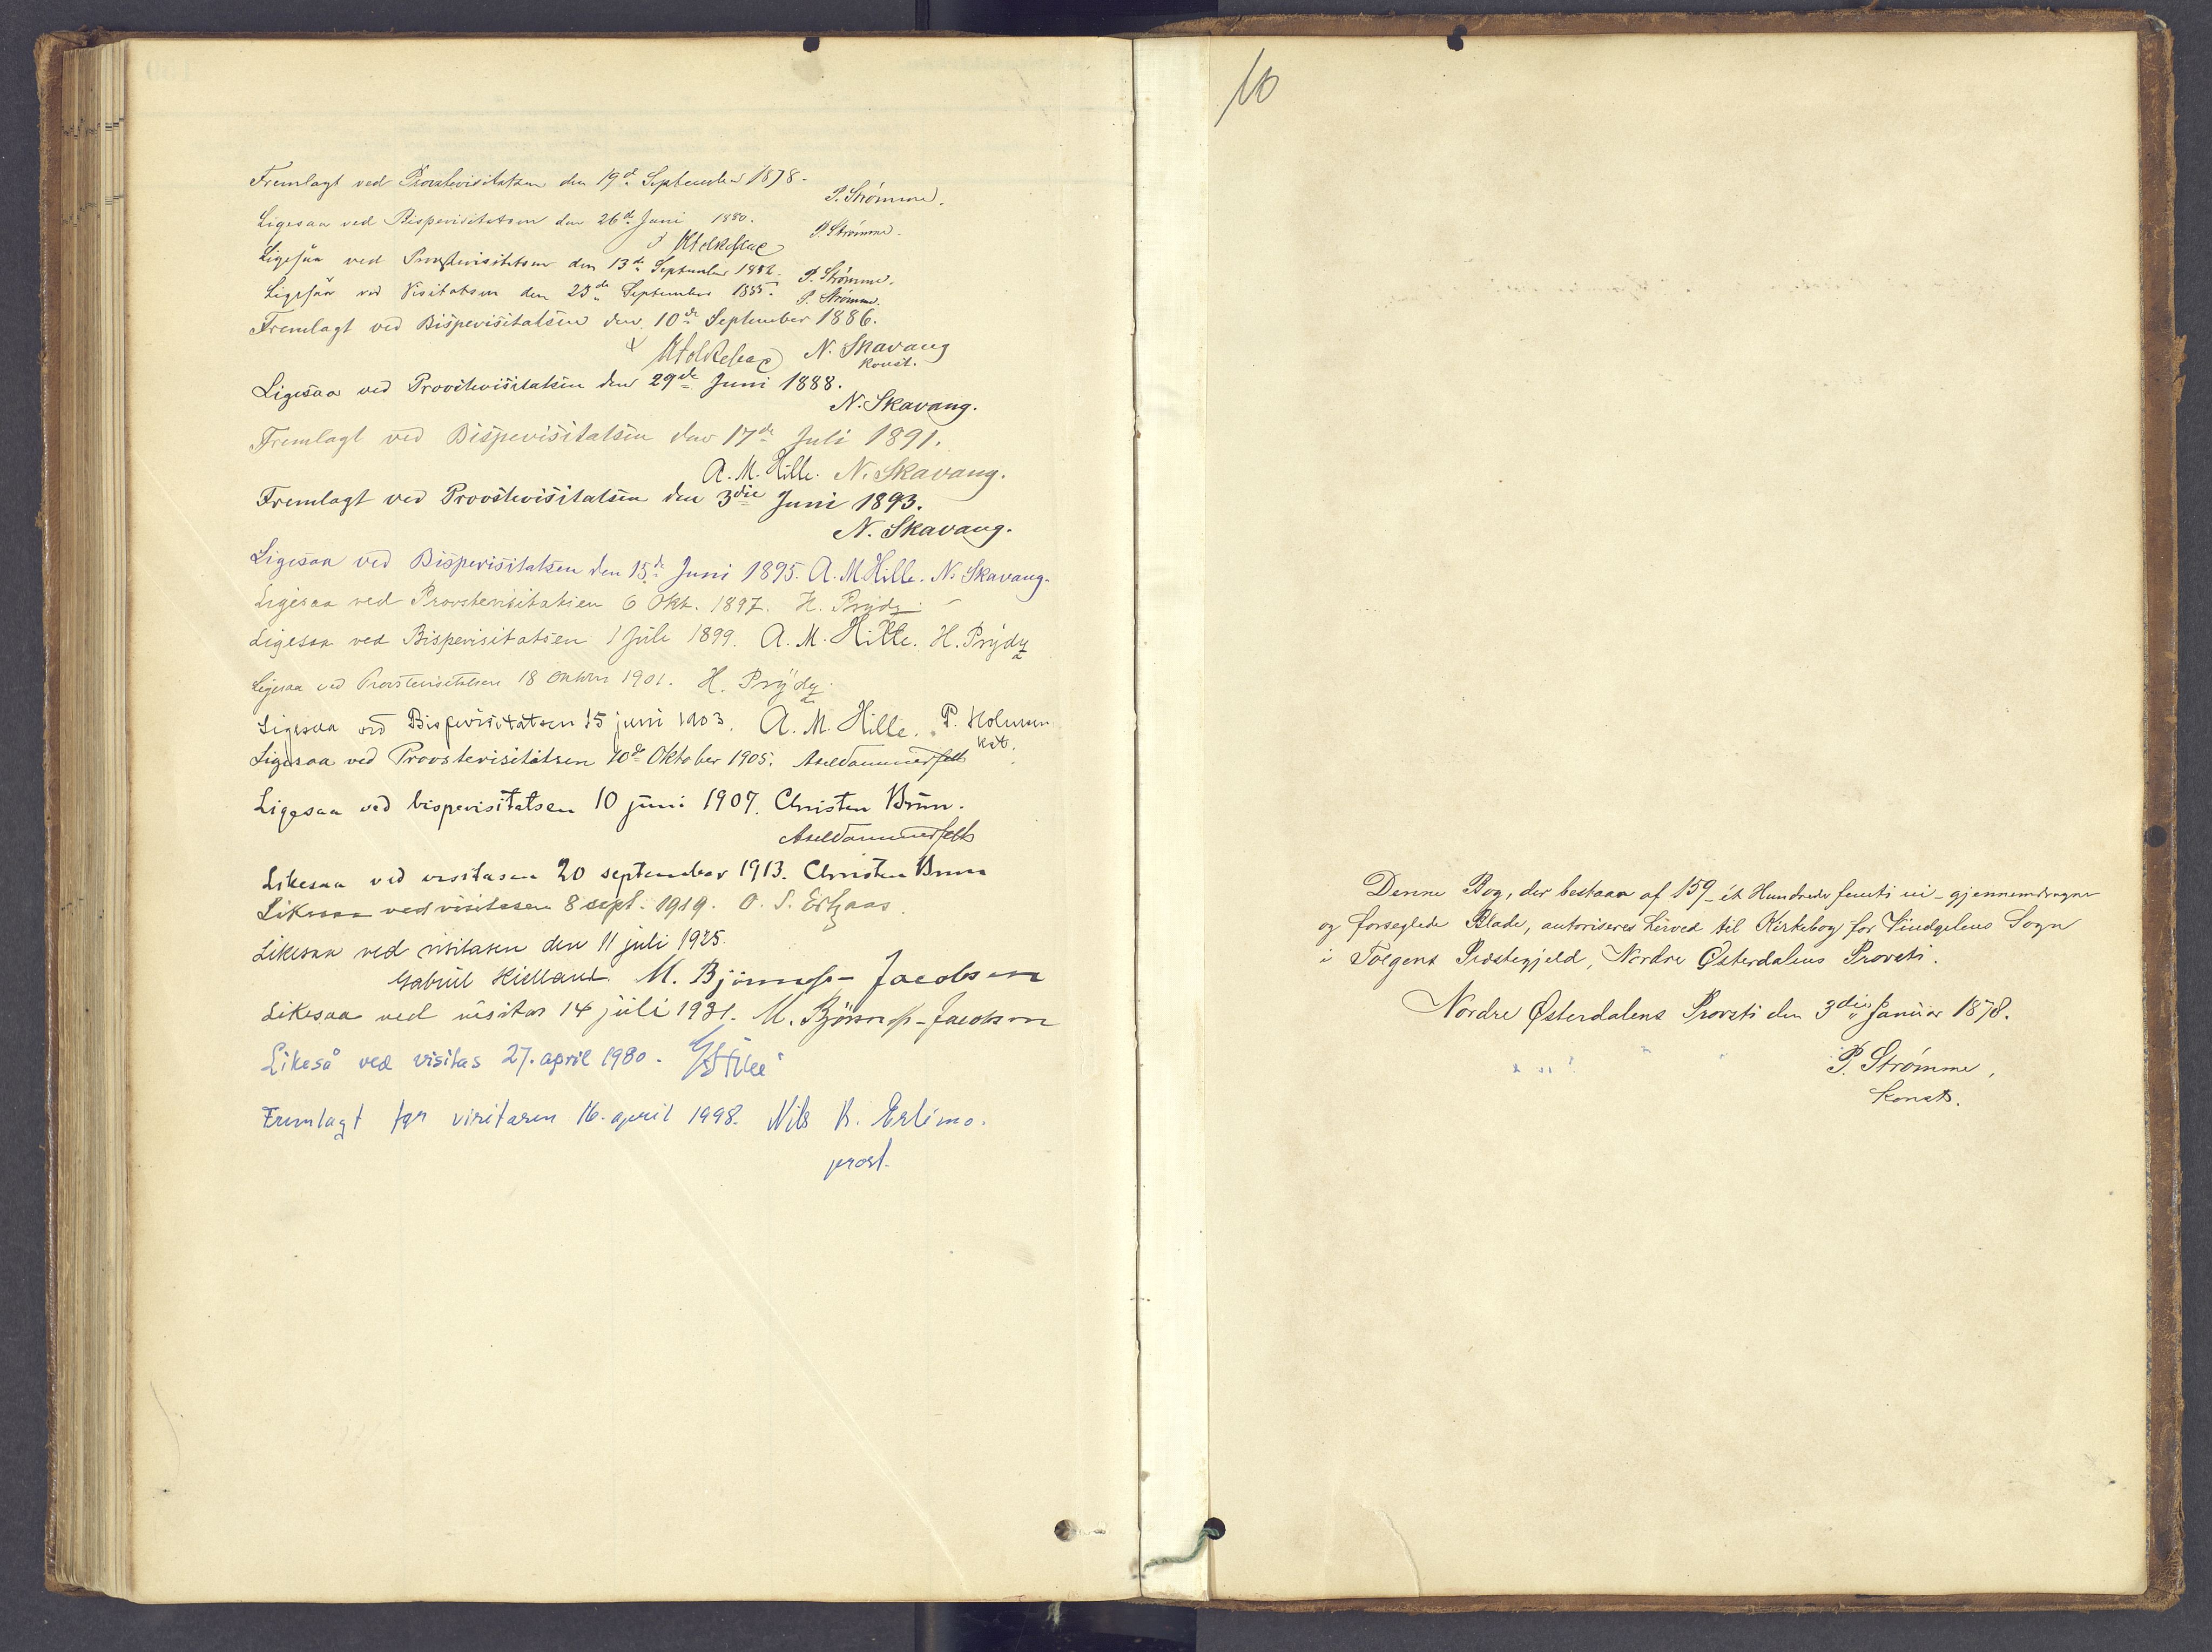 Fremlagt ved Provstevisitatsen den 19de September 1878.
P. Strømme.
Ligesaa ved Bispevisitatsen den 26de Juni 1880.
P. Strømme.
Ligesaa ved Provstevisitatsen den 13de September 1882. P. Strømme.
Ligesaa ved Visitatsen den 23de September 1885. P. Strømme.
Fremlagt ved Bispevisitatsen den 10de September 1886.
N. Skavang
Konst.
Ligesaa ved Provstevisitatsen den 29de Juni 1888.
N. Skavang.
Fremlagt ved Bispevisitatsen den 17de Juli 1891.
A. M. Hille. N. Skavang.
Fremlagt ved Provstevisitatsen den 3die Juni 1893.
N. Skavang.
Ligesaa ved Bispevisitatsen den 15de Juni 1895. A. M Hille. N. Skavang.
Ligesaa ved Provstevisitatsen 6 Okt. 1897. H. Prydz.
Ligesaa ved Bispevisitatsen 1 Juli 1899. A. M. Hille. H. Prydz
Ligesaa ved Provstevisitatsen 18 Oktober 1901. H. Prydz.
Ligesaa ved Bispevisitatsen 15 juni 1903. A. M. Hille. P. Holmsen
kst.
Ligesaa ved Provstevisitatsen 10de Oktober 1905. Axel Sommerfelt
Ligesaa ved bispevisitatsen 10 juni 1907. Christen Brun.
Axel Sommerfelt
Likesaa ved visitasen 20 september 1913. Christen Brun
Likesaa ved visitasen 8 sept. 1919. O. S.
Likesaa ved visitasen den 11 juli 1925.
Gabriel Kielland. M. Bjønness-Jacobsen
Likesaa ved visitas 14 juli 1931. M. Bjønness-Jacobsen
Likeså ved visitas 27. april 1980.
Fremlagt før visitasen 16. april 1998. Nils K.
prost.
10
Denne Bog, der bestaar af 159 - ét Hundrede femti ni - gjennemdragne
og forseglede Blade, autoriseres herved til Kirkebog for Vingelens Sogn
i Tolgens Præstegjeld, Nordre Østerdalens Provsti.
Nordre Østerdalens Provsti den 3die Januar 1878.
P. Strømme,
Konst.